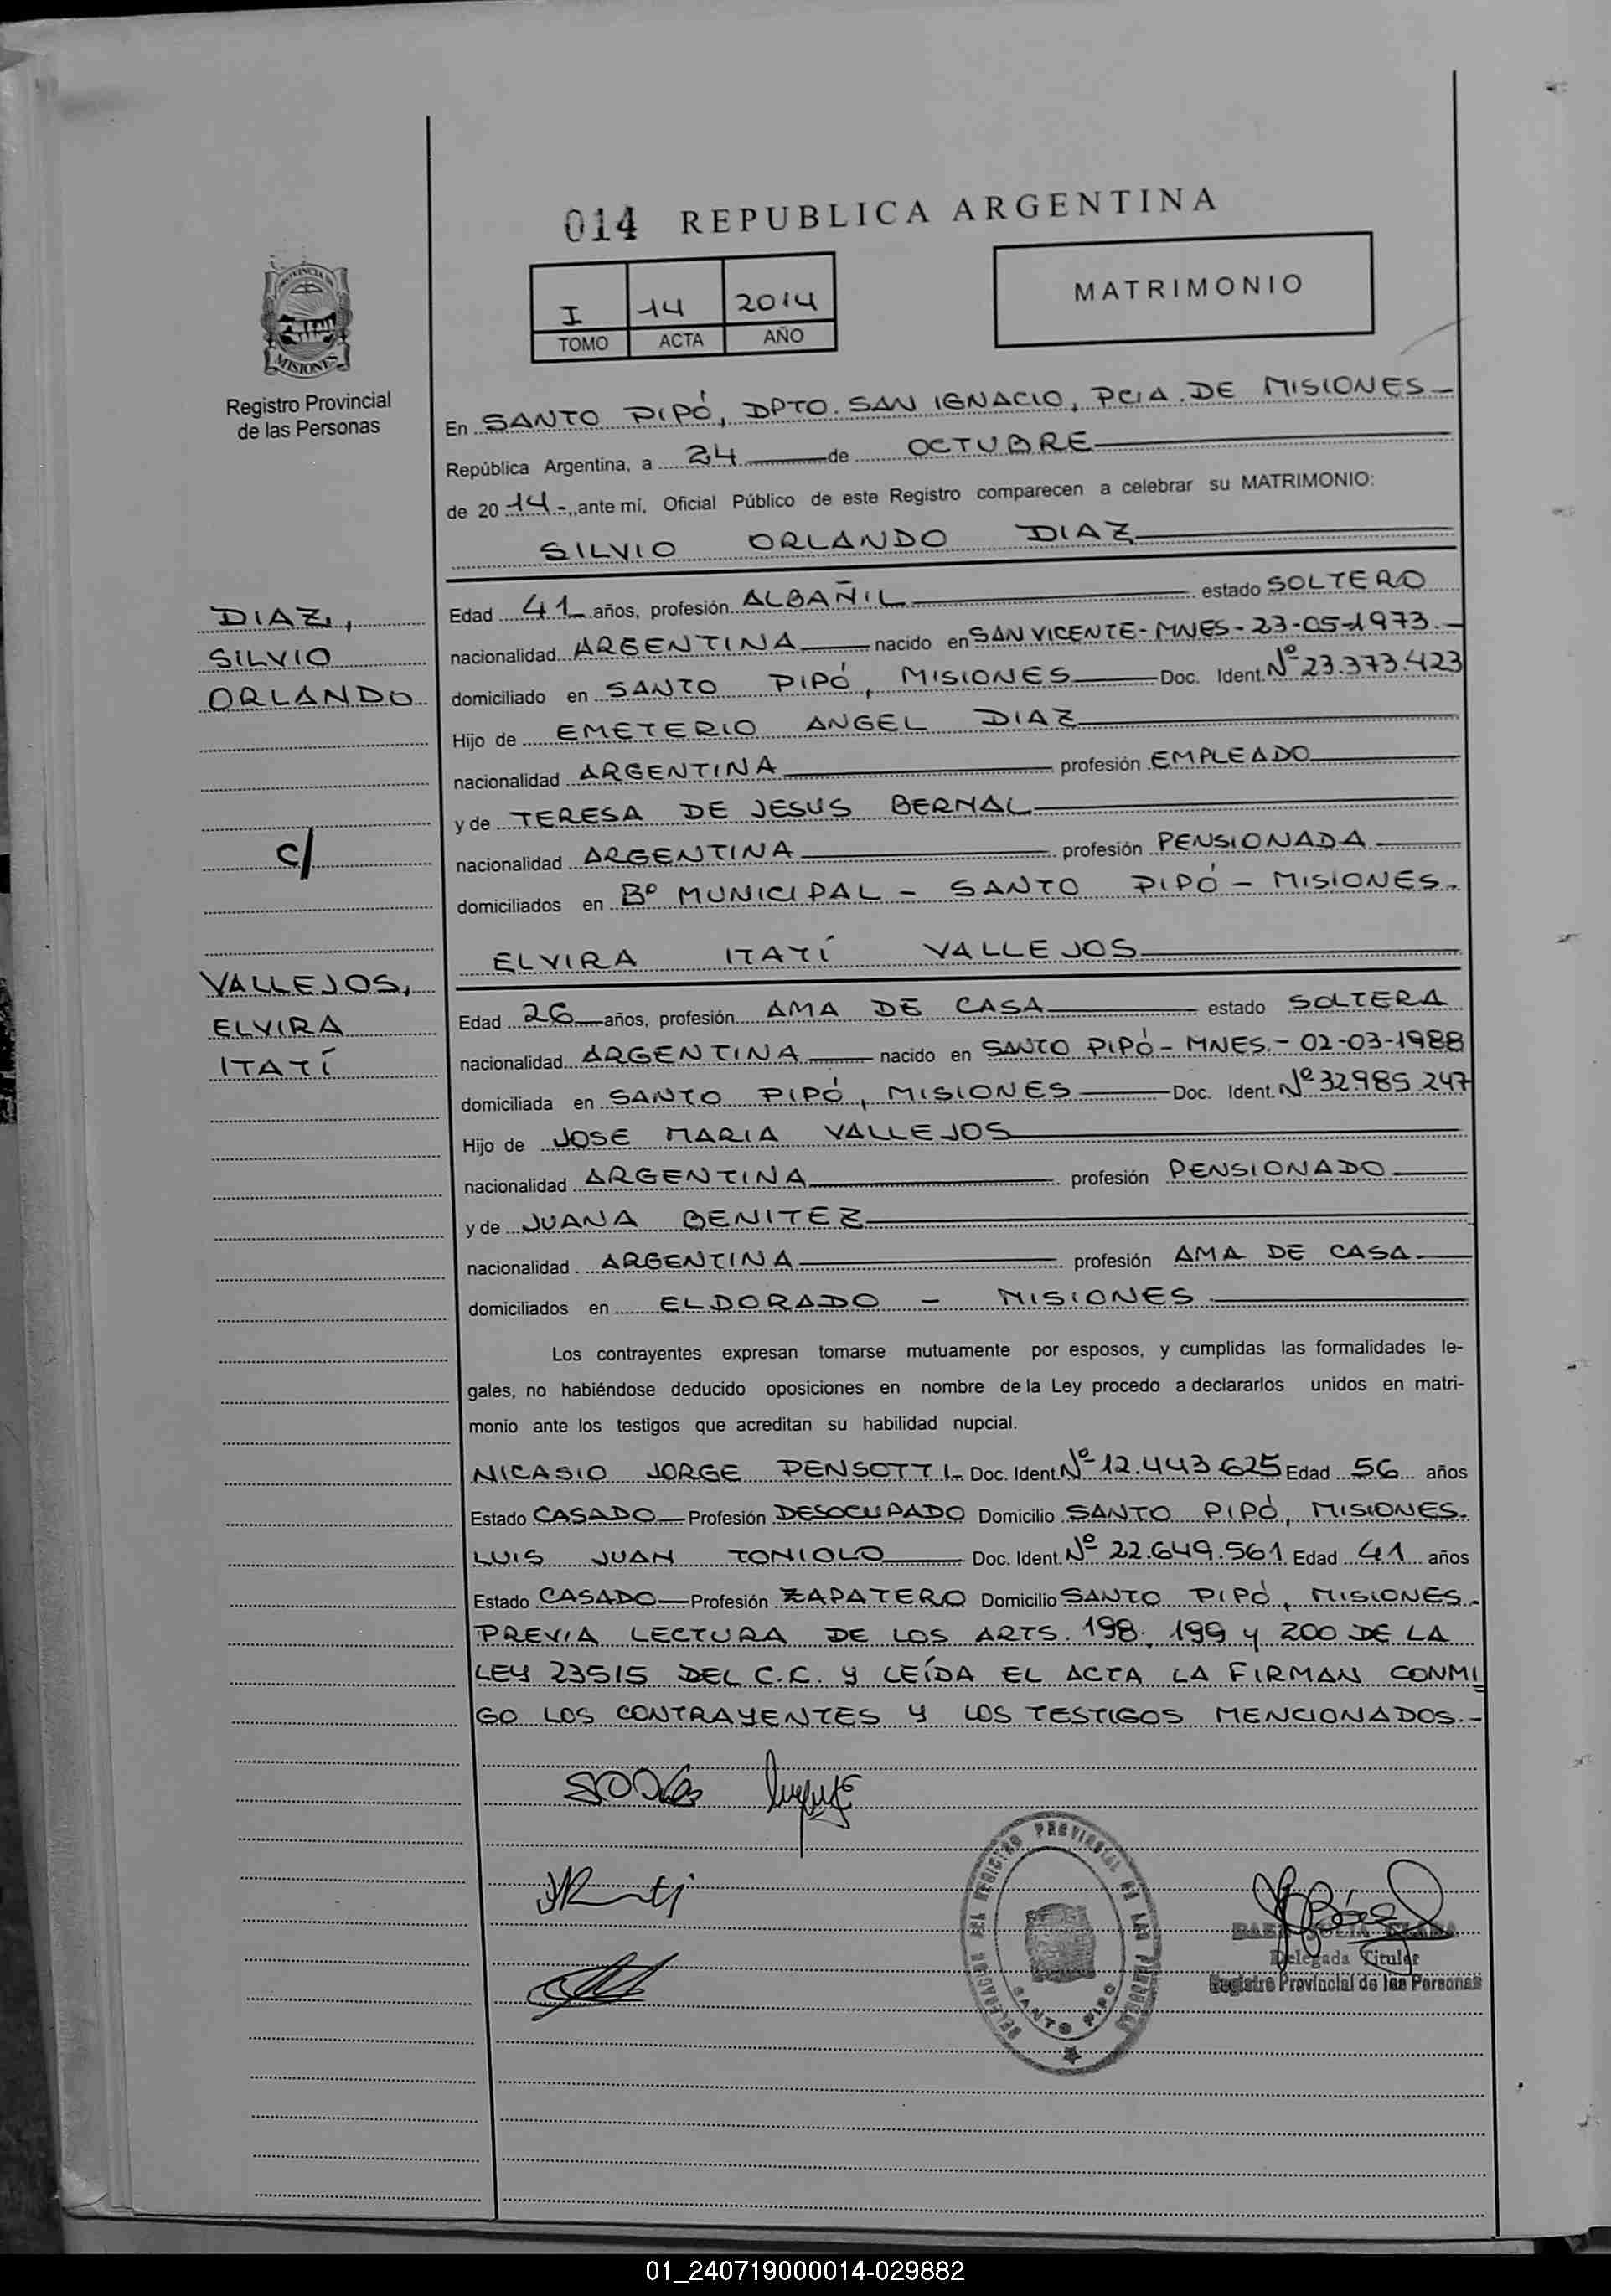 014 REPUBLICA ARGENTINA
PROVINCIA DE
MISIONES
Registro Provincial
de las Personas
I 14 2014
TOMO ACTA AÑO
MATRIMONIO
En SANTO PIPÓ, DPTO. SAN IGNACIO, PCIA. DE MISIONES
República Argentina, a 24 de OCTUBRE
de 20 14 -, ante mí, Oficial Público de este Registro comparecen a celebrar su MATRIMONIO:
SILVIO ORLANDO DIAZ
DIAZ,
SILVIO
ORLANDO
Edad 41 años, profesión ALBAÑIL estado SOLTERO
nacionalidad ARGENTINA nacido en SAN VICENTE - MNES - 23-05-1973.-
domiciliado en SANTO PIPÓ, MISIONES Doc. Ident. Nº 23.373.423
Hijo de EMETERIO ANGEL DIAZ
nacionalidad ARGENTINA profesión EMPLEADO
y de TERESA DE JESUS BERNAL
c/
nacionalidad ARGENTINA profesión PENSIONADA
domiciliados en Bº MUNICIPAL - SANTO PIPÓ - MISIONES.
ELVIRA ITATÍ VALLEJOS
VALLEJOS,
ELVIRA
ITATÍ
Edad 26 años, profesión AMA DE CASA estado SOLTERA
nacionalidad ARGENTINA nacido en SANTO PIPÓ - MNES. - 02-03-1988
domiciliada en SANTO PIPÓ, MISIONES Doc. Ident. Nº 32.985.247
Hijo de JOSE MARIA VALLEJOS
nacionalidad ARGENTINA profesión PENSIONADO
y de JUANA BENITEZ
nacionalidad ARGENTINA profesión AMA DE CASA
domiciliados en ELDORADO - MISIONES.
Los contrayentes expresan tomarse mutuamente por esposos, y cumplidas las formalidades le-
gales, no habiéndose deducido oposiciones en nombre de la Ley procedo a declararlos unidos en matri-
monio ante los testigos que acreditan su habilidad nupcial.
NICASIO JORGE PENSOTTI Doc. Ident. Nº 12.443.625 Edad 56 años
Estado CASADO Profesión DESOCUPADO Domicilio SANTO PIPÓ, MISIONES.
LUIS JUAN TONIOLO Doc. Ident. Nº 22.649.561 Edad 41 años
Estado CASADO Profesión ZAPATERO Domicilio SANTO PIPÓ, MISIONES.
PREVIA LECTURA DE LOS ARTS. 198, 199 y 200 DE LA
LEY 23515 DEL C.C. Y LEÍDA EL ACTA LA FIRMAN CONMI
GO LOS CONTRAYENTES Y LOS TESTIGOS MENCIONADOS.-
DELEGACION DEL REGISTRO PROVINCIAL DE LAS PERSONAS
SANTO PIPO
Delegada Titular
Registro Provincial de las Personas
01_240719000014-029882